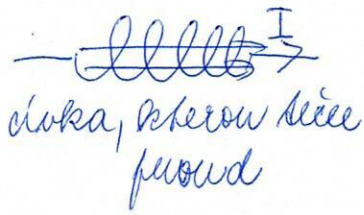 I
cívka, kterou teče
proud